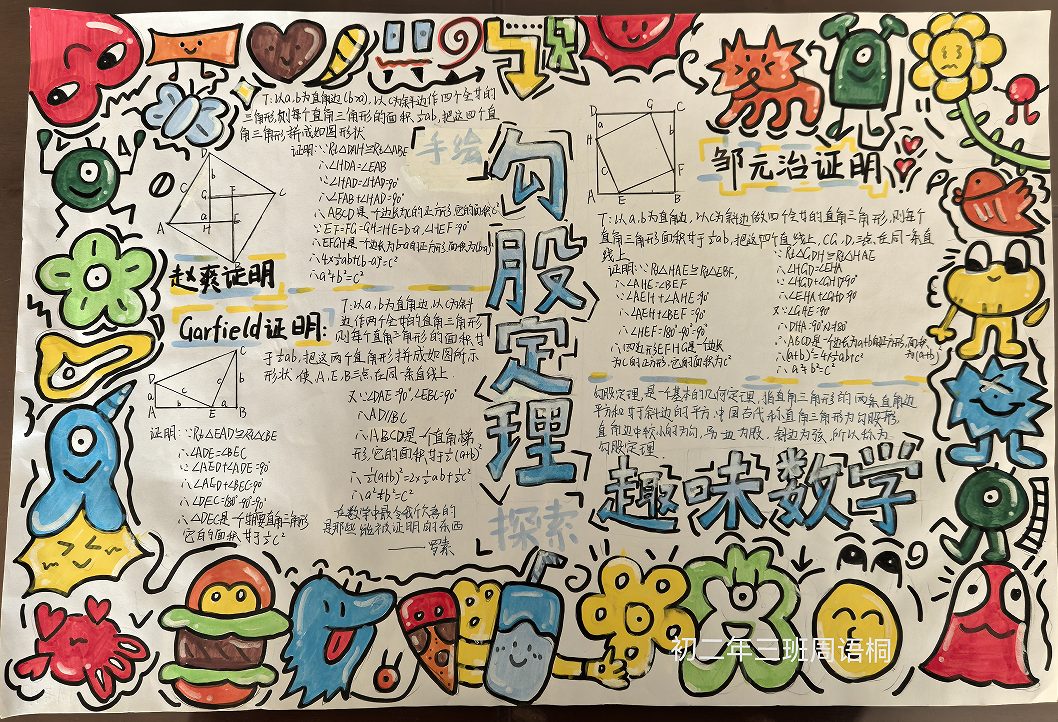 手绘
勾股定理
探索
T:以a,b为直角边(b>a),以c为斜边作四个全等的
三角形,则每个直角三角形的面积½ab,把这四个直
角三角形拼成如图形状
证明:∵Rt△DAH≌Rt△ABE
∴∠HDA=∠EAB
∵∠HAD=∠HAD=90°
∴∠FAB+∠HAD=90°
∴ABCD是一个边长为c的正方形,它的面积c²
∵EF=FG=GH=HE=b-a,∠HEF=90°
∴EFGH是一个边长为b-a的正方形面积为(b-a)²
∴4×½ab+(b-a)²=c²
∴a²+b²=c²
赵爽证明
Garfield证明:
T:以a,b为直角边,以c为斜
边作两个全等的直角三角形
则每个直角三角形的面积等
于½ab,把这两个直角形拼成如图所示
形状,使A,E,B三点,在同一条直线上
证明:∵Rt△EAD≌Rt△CBE
∴∠ADE=∠BEC
∵∠AED+∠ADE=90°
∴∠AED+∠BEC=90°
∴∠DEC=180°-90°=90°
∴△DEC是一个等腰直角三角形
它自的面积等于½c²
又∵∠DAE=90°,∠EBC=90°
∴AD//BC
∴ABCD是一个直角梯
形,它的面积等于½(a+b)²
∴½(a+b)²=2×½ab+½c²
∴a²+b²=c²
在数学中最令我欣喜的
是那些能被证明的东西
——罗素
邹元治证明
T:以a,b为直角边,以c为斜边做四个全等的直角三角形,则每个
直角三角形面积等于½ab,把这四个直线上,C,G,D三点在同一条直
线上
证明:∵Rt△HAE≌Rt△EBF,
∴∠AHE=∠BEF
∵∠AEH+∠AHE=90°
∴∠AEH+∠BEF=90°
∴∠HEF=180°-90°=90°
∴四边形EFHG是一个边长
为c的正方形,它的面积为c²
∵Rt△GDH≌Rt△HAE
∴∠HGD=∠EHA
∵∠HGD+∠GHD=90°
∴∠EHA+∠GHD=90°
又∵∠GHE=90°
∴∠DHA=90°+90°=180°
∴ABCD是一个边长为a+b的正方形,面积
为(a+b)²
∴(a+b)²=4×½ab+c²
∴a²+b²=c²
勾股定理,是一个基本的几何定理,指直角三角形的两条直角边
平方和等于斜边的平方,中国古代称直角三角形为勾股形,
直角边中较小的为勾,另一边为股,斜边为弦,所以称为
勾股定理
趣味数学
初二年三班周语桐